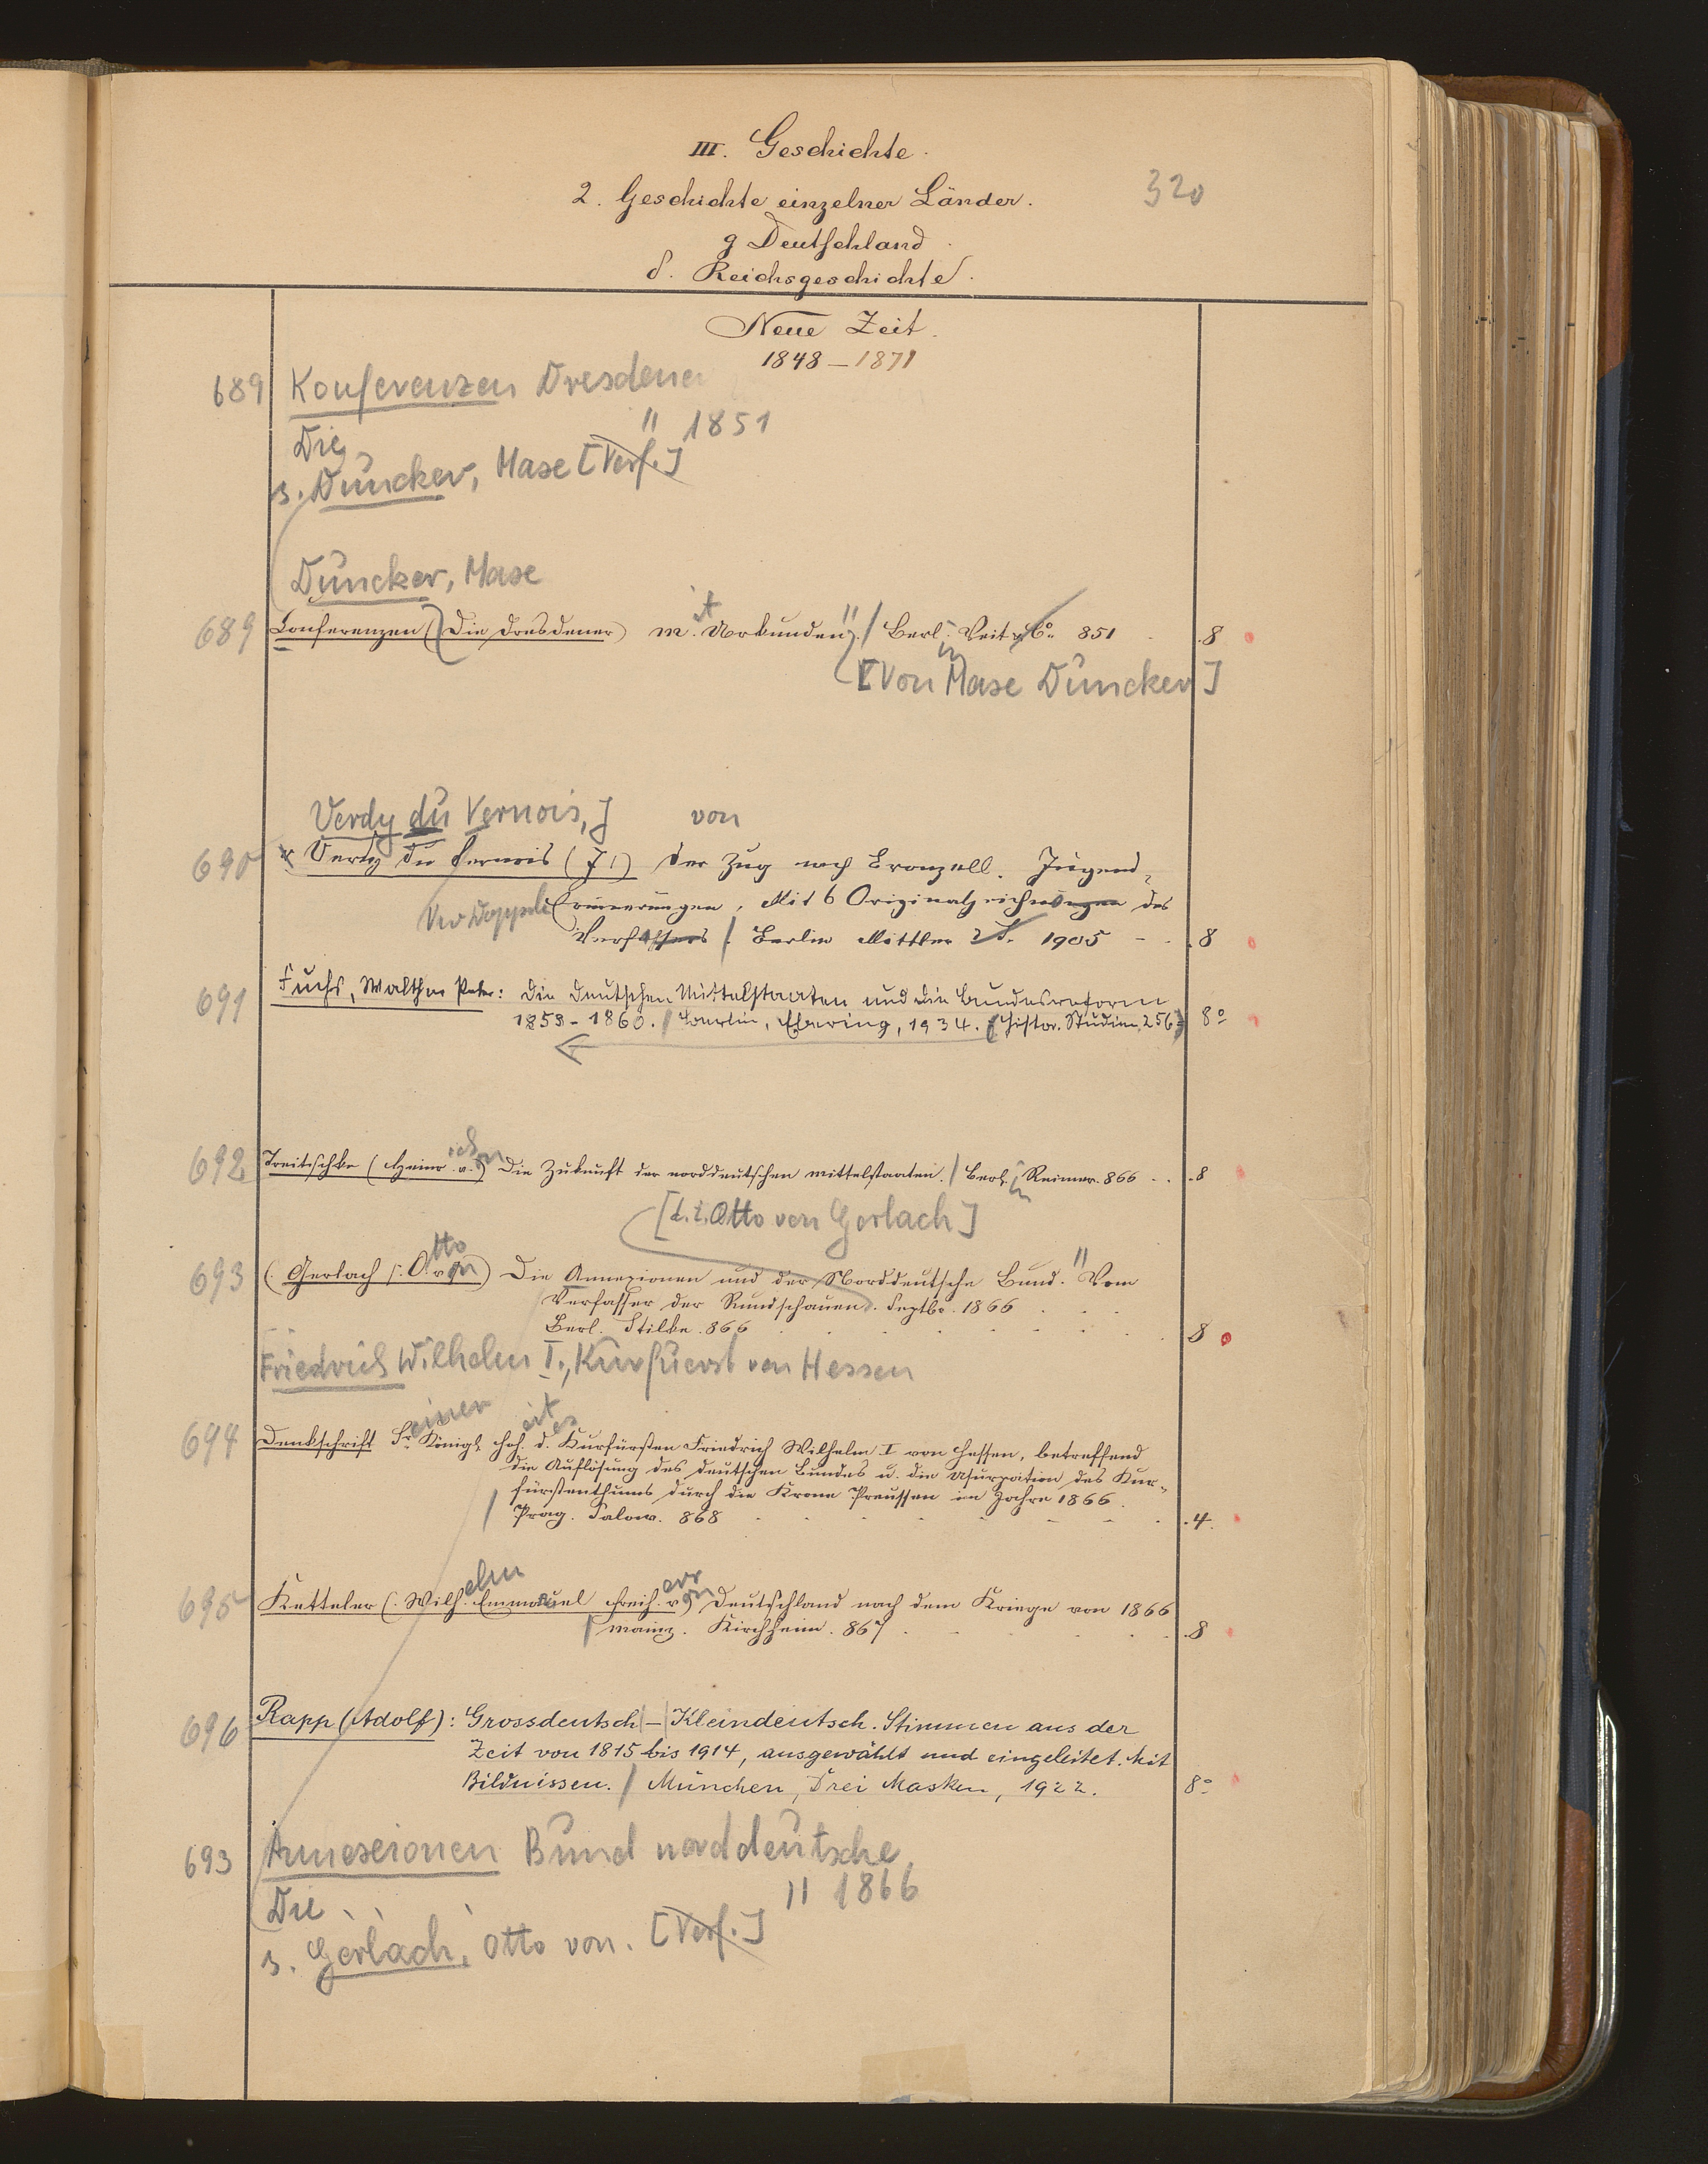 III. Geschichte.
2. Geschichte einzelner Länder.
320
g Deutschland.
δ. Reichsgeschichte.
Neue Zeit.
1848–1871
689 Konferenzen Dresdener
Die " 1851
s. Duncker, Maxe [Verf.]
Duncker, Maxe
689 Conferenzen (Die Dresdener) mit Urkunden". / Berlin Veit u Co. 851 . 8
[Von Maxe Duncker]
Verdy du Vernois, J von
690 Verdy du Vernois (J.) Der Zug nach Bronzell. Jugend-
Erinnerungen. Mit 6 Originalzeichnungen des
Verfassers / Berlin Mittler u. S. 1905 - . 8
691 Fuchs, Walther Peter: Die deutschen Mittelstaaten und die Bundesreform
1853-1860. / Berlin, Ebering, 1934. (Histor. Studien, 256) 8°
692 Treitschke (Heinrich von) Die Zukunft der norddeutschen Mittelstaaten. / Berlin Reimer. 866 . . . 8
[d.i. Otto von Gerlach]
693 (Gerlach (: Otto von) Die Annexionen und der Norddeutsche Bund." Vom
Verfasser der Rundschauen. Septbr. 1866
Berl. Stilke. 866 . 8
Friedrich Wilhelm I., Kurfuerst von Hessen
694 Denkschrift Seiner Königl. Hoheit des Kurfürsten Friedrich Wilhelm I von Hessen, betreffend
die Auflösung des deutschen Bundes u. die Usurpation des Kur-
fürstenthums durch die Krone Preussen im Jahre 1866.
/ Prag. Salow. 868 . 4.
695 Ketteler (: Wilhelm Emmanuel Freiherr von) Deutschland nach dem Kriege von 1866
/ Mainz. Kirchheim. 867 . 8
696 Rapp (Adolf): Grossdeutsch – Kleindeutsch. Stimmen aus der
Zeit von 1815 bis 1914, ausgewählt und eingeleitet. Mit
Bildnissen. / München, Drei Masken, 1922. 8°
693 Annexionen Bund norddeutsche
Die " 1866
s. Gerlach, Otto von. [Verf.]